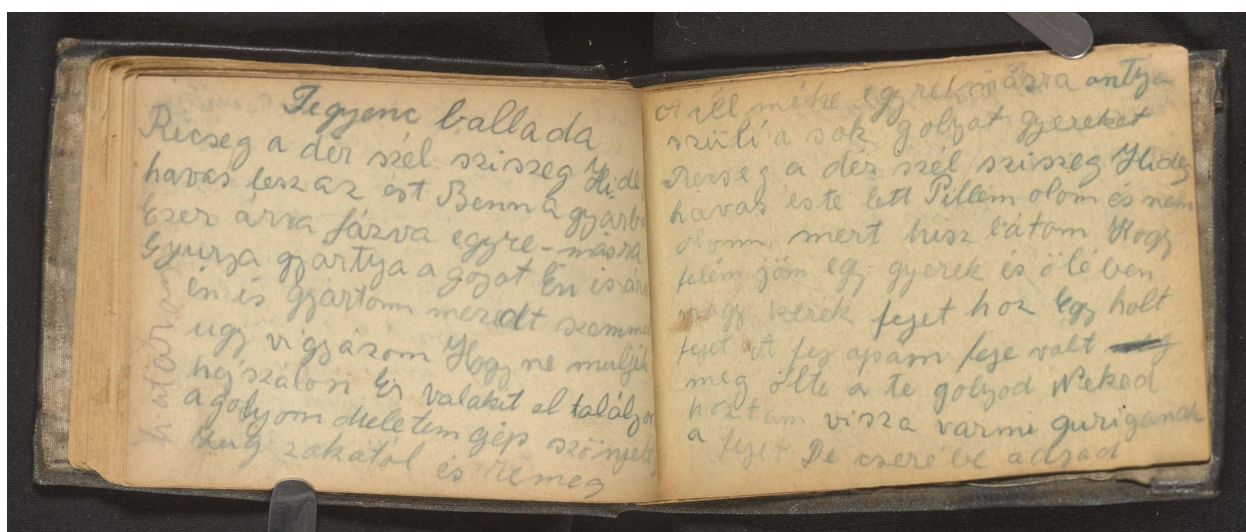 Fegyenc ballada
Ricseg a dér szél sziszeg Hide
havas lesz az est Benn a gyárba
Ezer árva fázva egyre-másra
Gyurja gyartya a gojot Én is árv
én is gyártom meredt szemme
ugy vigyázom Hogy ne muljék
hajszálon Ér valakit el találjon
a golyom Melettem gép szörnyeteg
zug zakatol és remeg
határa
A méhe egyre másra ontya
szüli a sok golyot gyereket
Recseg a dér szél sziszeg Hideg
havas este lett Pillem olom és nem
olom mert hisz látom Hogy
felém jöm egy gyerek és ölében
nagy kerek fejet hoz Egy holt
fejet A fej apam feje volt
meg ölte a te golyod Neked
hoztam vissza varmi gurigának
a fejet De cserébe adjad